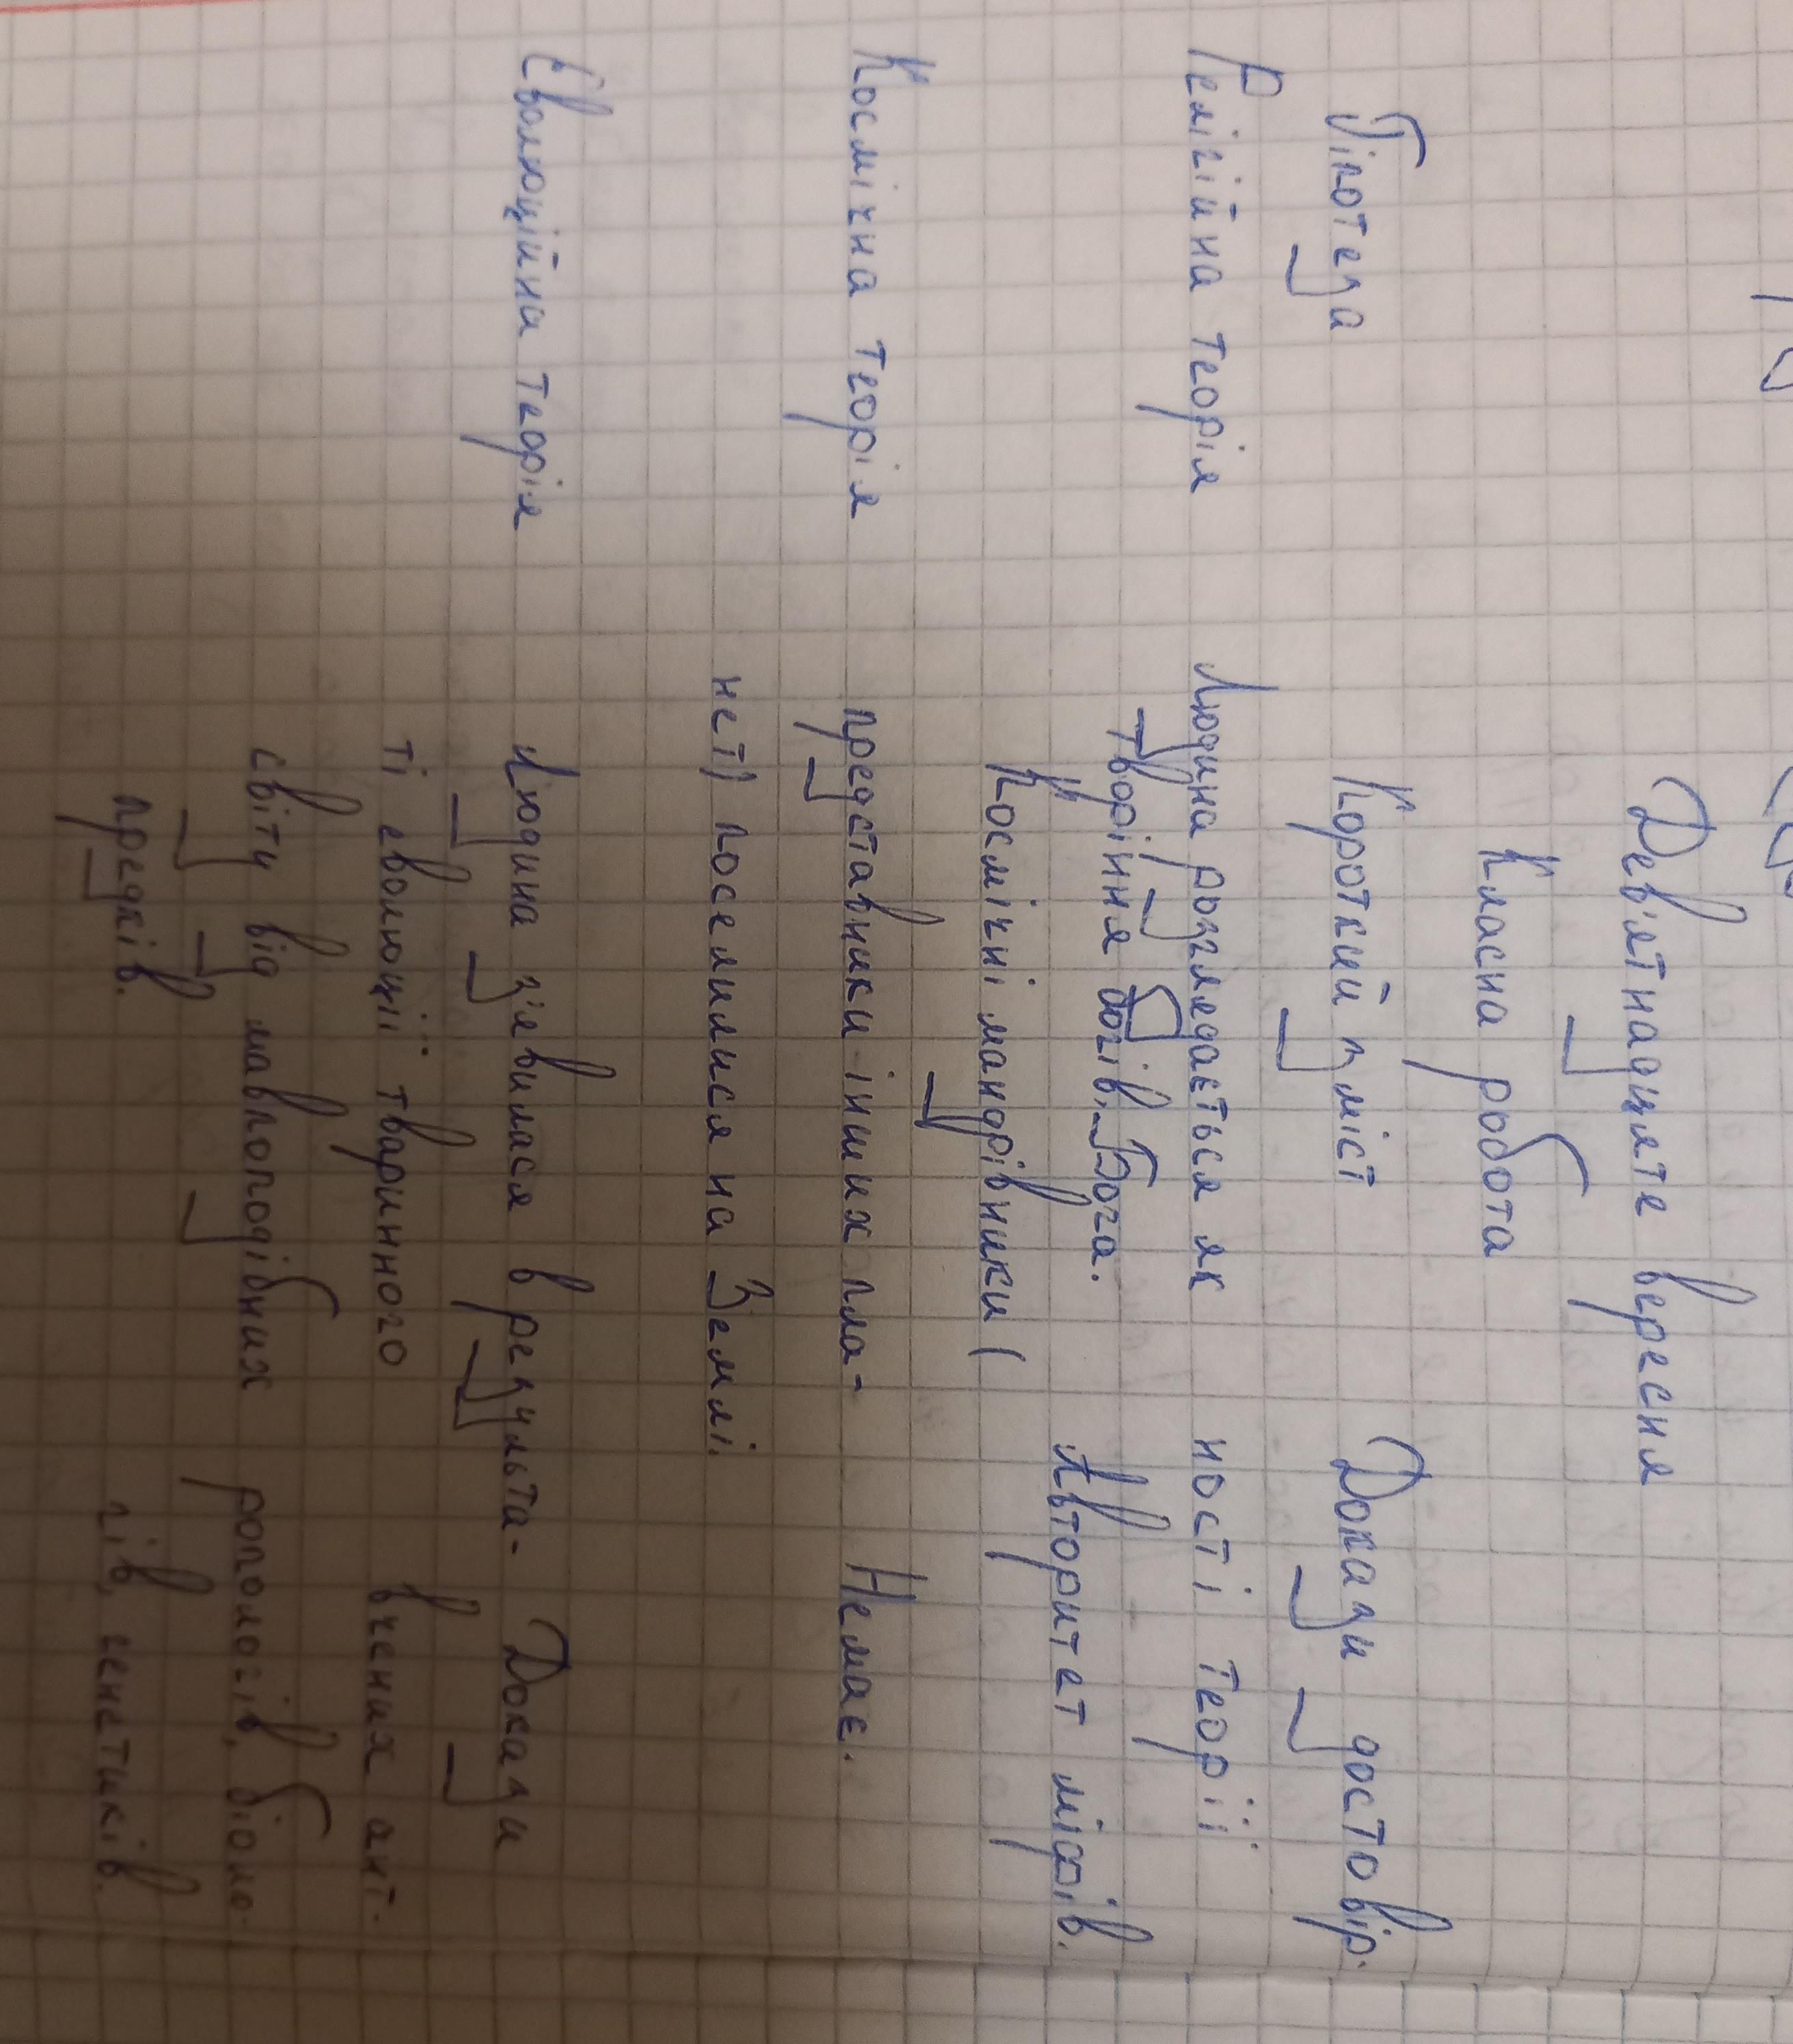 Дев'ятнадцяте вересня
Класна робота
Гіпотеза Короткий зміст Докази достовір-
Релігійна теорія Людина розглядається як ності теорії
творіння богів, Бога. Авторитет міфів.
Космічні мандрівники (
Космічна теорія представники інших пла- Немає.
нет) поселилися на Землі.
Еволюційна теорія Людина з'явилася в результа- Докази
ті еволюції тваринного вчених ант-
світу від мавпоподібних ропологів, біоло-
предків. гів, генетиків.